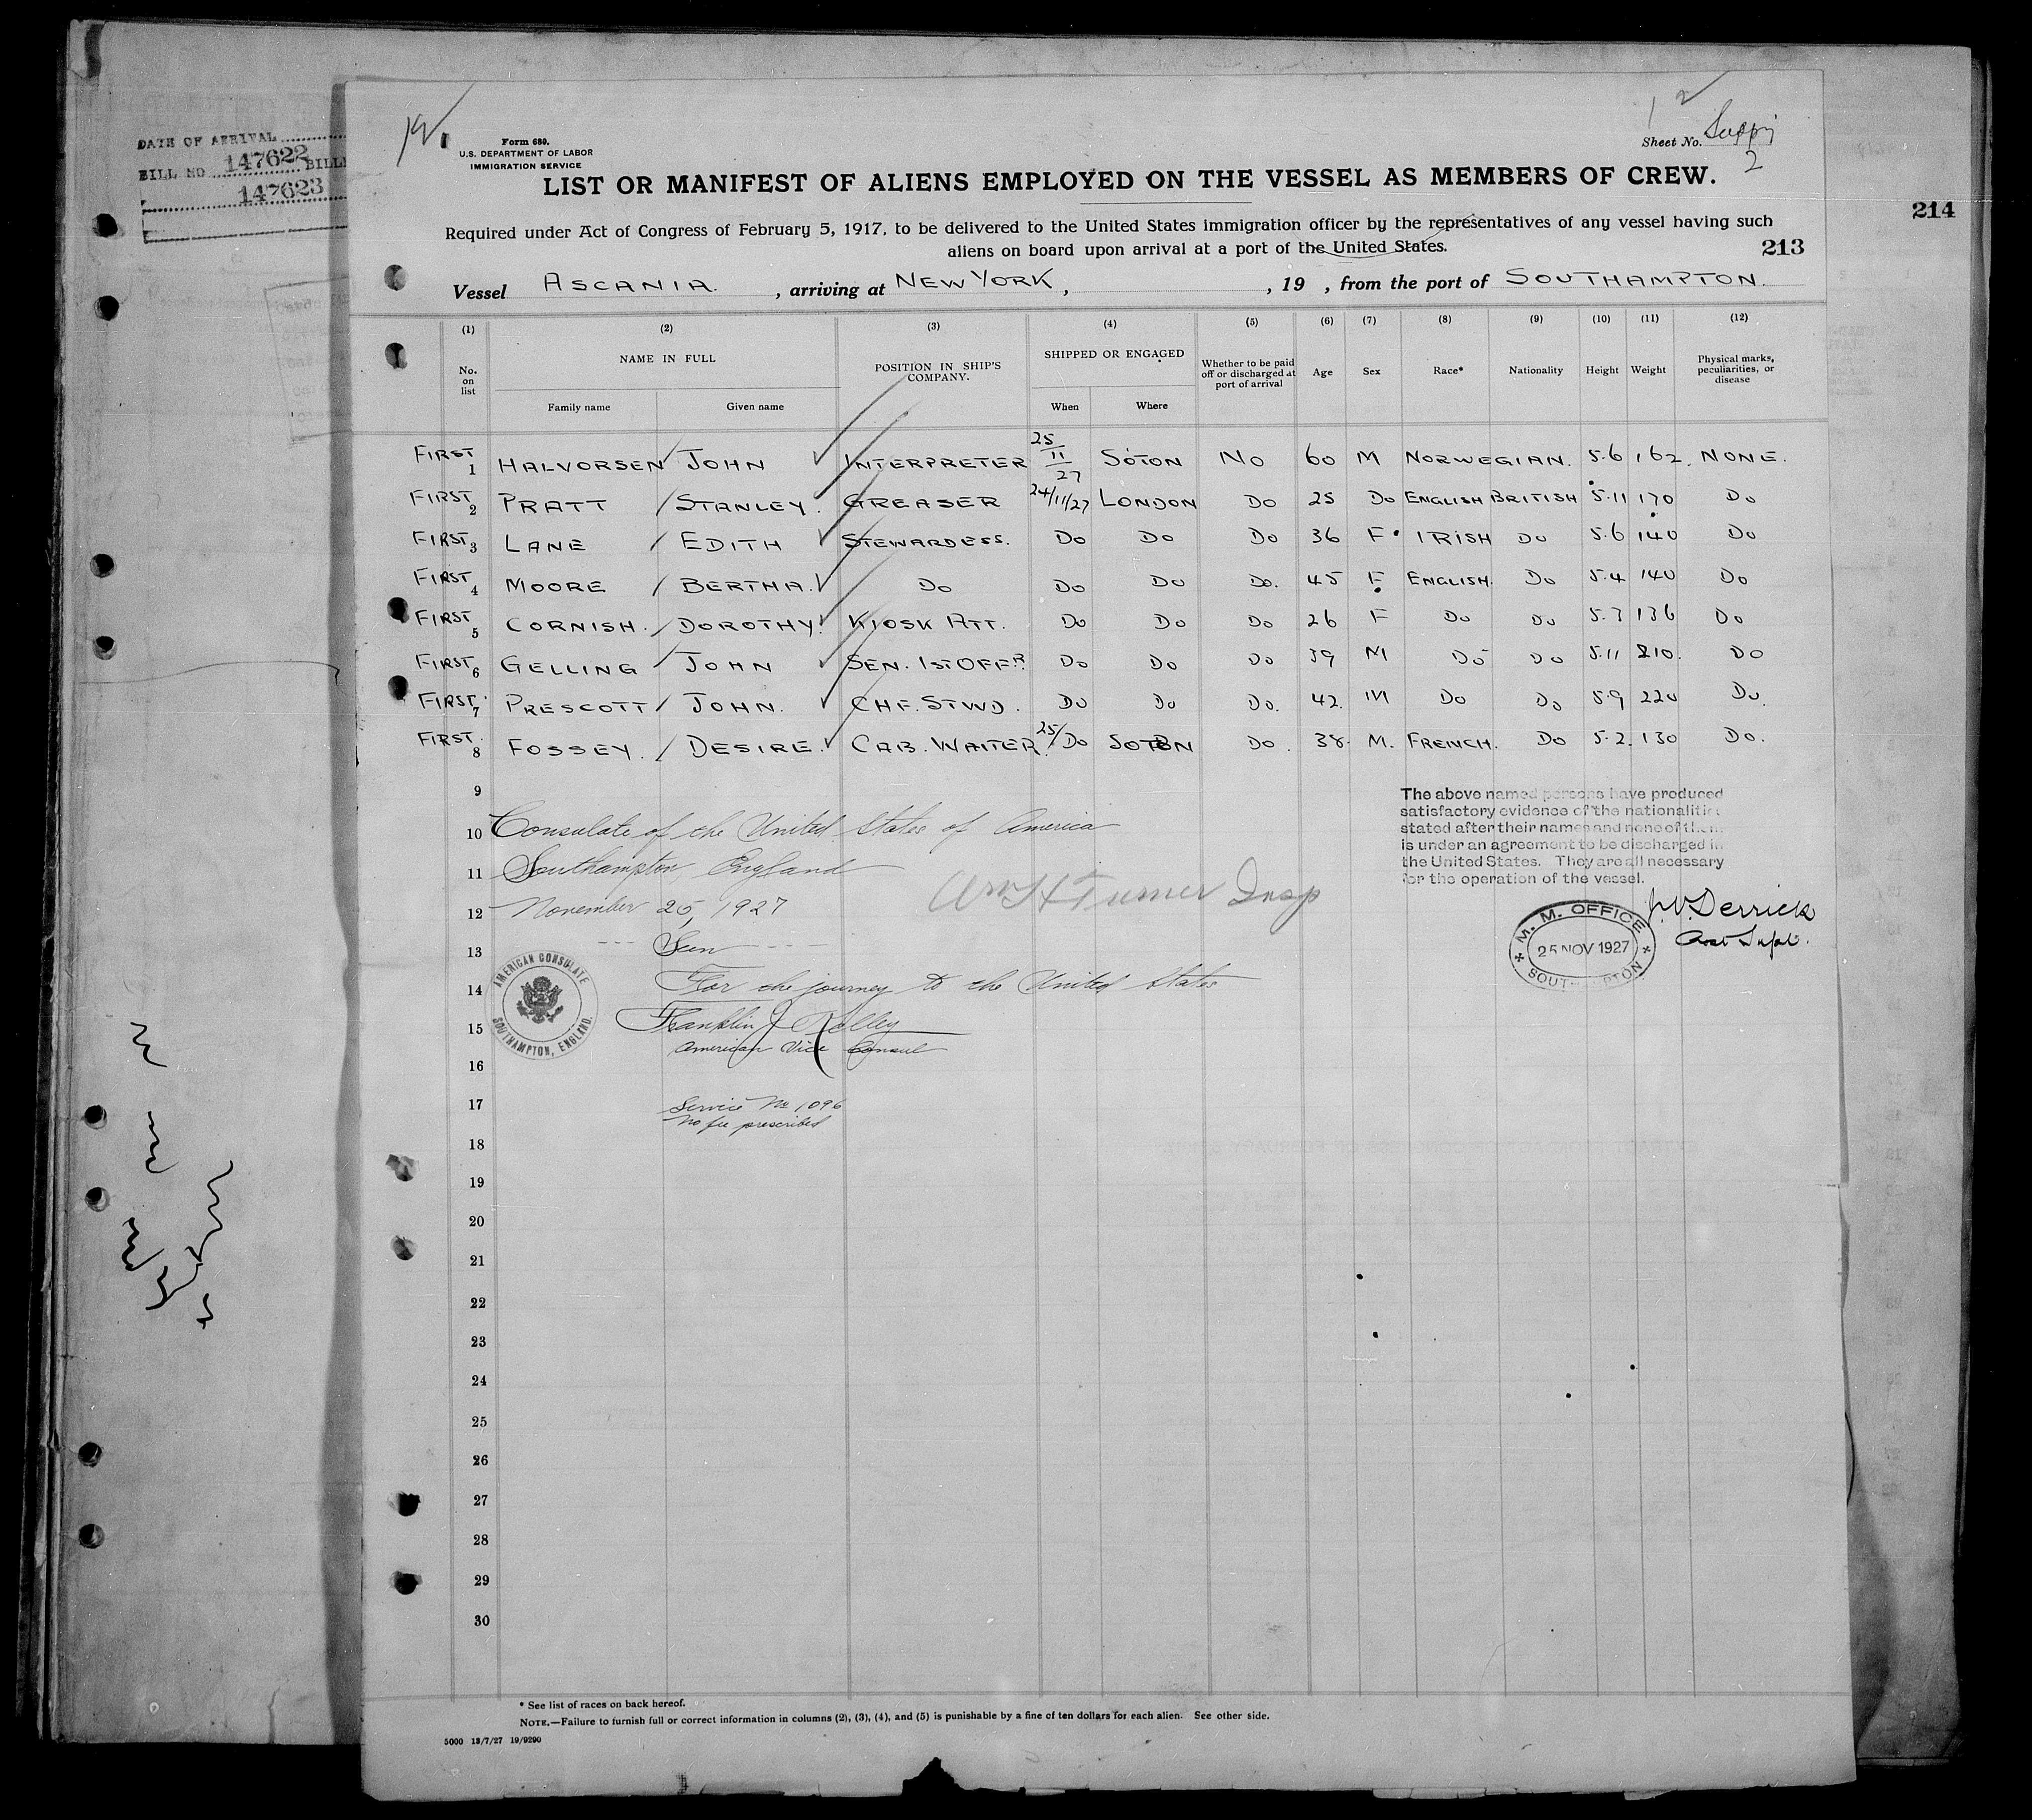 DATE OF ARRIVAL
BILL NO 147622 BILL
147623
Form 680.
U.S. DEPARTMENT OF LABOR
IMMIGRATION SERVICE
Sheet No. 2
LIST OR MANIFEST OF ALIENS EMPLOYED ON THE VESSEL AS MEMBERS OF CREW.
Required under Act of Congress of February 5, 1917, to be delivered to the United States immigration officer by the representatives of any vessel having such
aliens on board upon arrival at a port of the United States.
214
213
Vessel ASCANIA. , arriving at NEW YORK , , 19 , from the port of SOUTHAMPTON.
(1) (2) (3) (4) (5) (6) (7) (8) (9) (10) (11) (12)
No. on list NAME IN FULL Family name Given name POSITION IN SHIP'S COMPANY. SHIPPED OR ENGAGED When Where Whether to be paid off or discharged at port of arrival Age Sex Race* Nationality Height Weight Physical marks, peculiarities, or disease
FIRST 1 HALVORSEN JOHN INTERPRETER 25/11/27 SOTON NO 60 M NORWEGIAN. 5.6 162. NONE.
FIRST 2 PRATT STANLEY. GREASER 24/11/27 LONDON DO 25 DO ENGLISH BRITISH 5.11 170 DO
FIRST 3 LANE EDITH STEWARDESS. DO DO DO 36 F IRISH DO 5.6 140 DO
FIRST 4 MOORE BERTHA. DO DO DO DO. 45 F ENGLISH. DO 5.4 140 DO
FIRST 5 CORNISH. DOROTHY. KIOSK ATT. DO DO DO 26 F DO DO 5.7 136 DO
FIRST 6 GELLING JOHN SEN. 1ST OFFR. DO DO DO 39 M DO DO 5.11 210. DO
FIRST 7 PRESCOTT JOHN. CHF. STWD. DO DO DO. 42. M DO DO 5.9 220 DO.
FIRST. 8 FOSSEY. DESIRE. CAB. WAITER. 25/DO SOTON DO. 38. M. FRENCH. DO 5.2. 130 DO.
9
The above named persons have produced
satisfactory evidence of the nationalities
stated after their names and none of them
is under an agreement to be discharged in
the United States. They are all necessary
for the operation of the vessel.
10 Consulate of the United States of America
11 Southampton, England
12 November 25, 1927
Wm H Turner Insp
J.V. Derrick
Asst Supt.
M. M. OFFICE
25 NOV 1927
SOUTHAMPTON
13 Seen
AMERICAN CONSULATE
SOUTHAMPTON, ENGLAND.
14 For the journey to the United States
15 Franklin J Kelley
American Vice Consul
16
17 Service No 1096
No fee prescribed
18
19
20
21
22
23
24
25
26
27
28
29
30
* See list of races on back hereof.
NOTE.—Failure to furnish full or correct information in columns (2), (3), (4), and (5) is punishable by a fine of ten dollars for each alien. See other side.
5000 13/7/27 19/9290